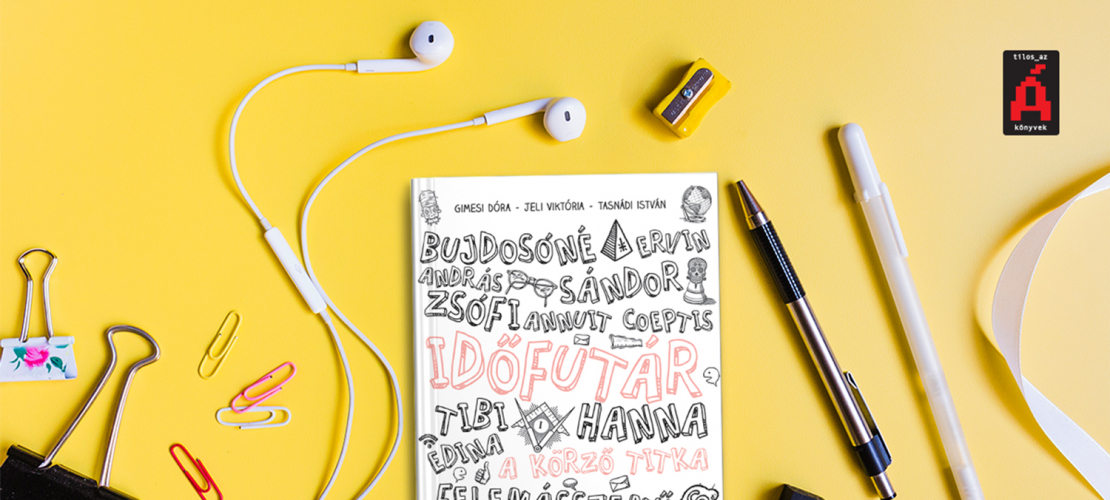 tilos_az
Á
könyvek
GIMESI DÓRA - JELI VIKTÓRIA - TASNÁDI ISTVÁN
BUJDOSÓNÉ ERVIN
ANDRÁS SÁNDOR
ZSÓFI ANNUIT COEPTIS
IDŐFUTÁR
TIBI HANNA
EDINA A KÖRZŐ TITKA